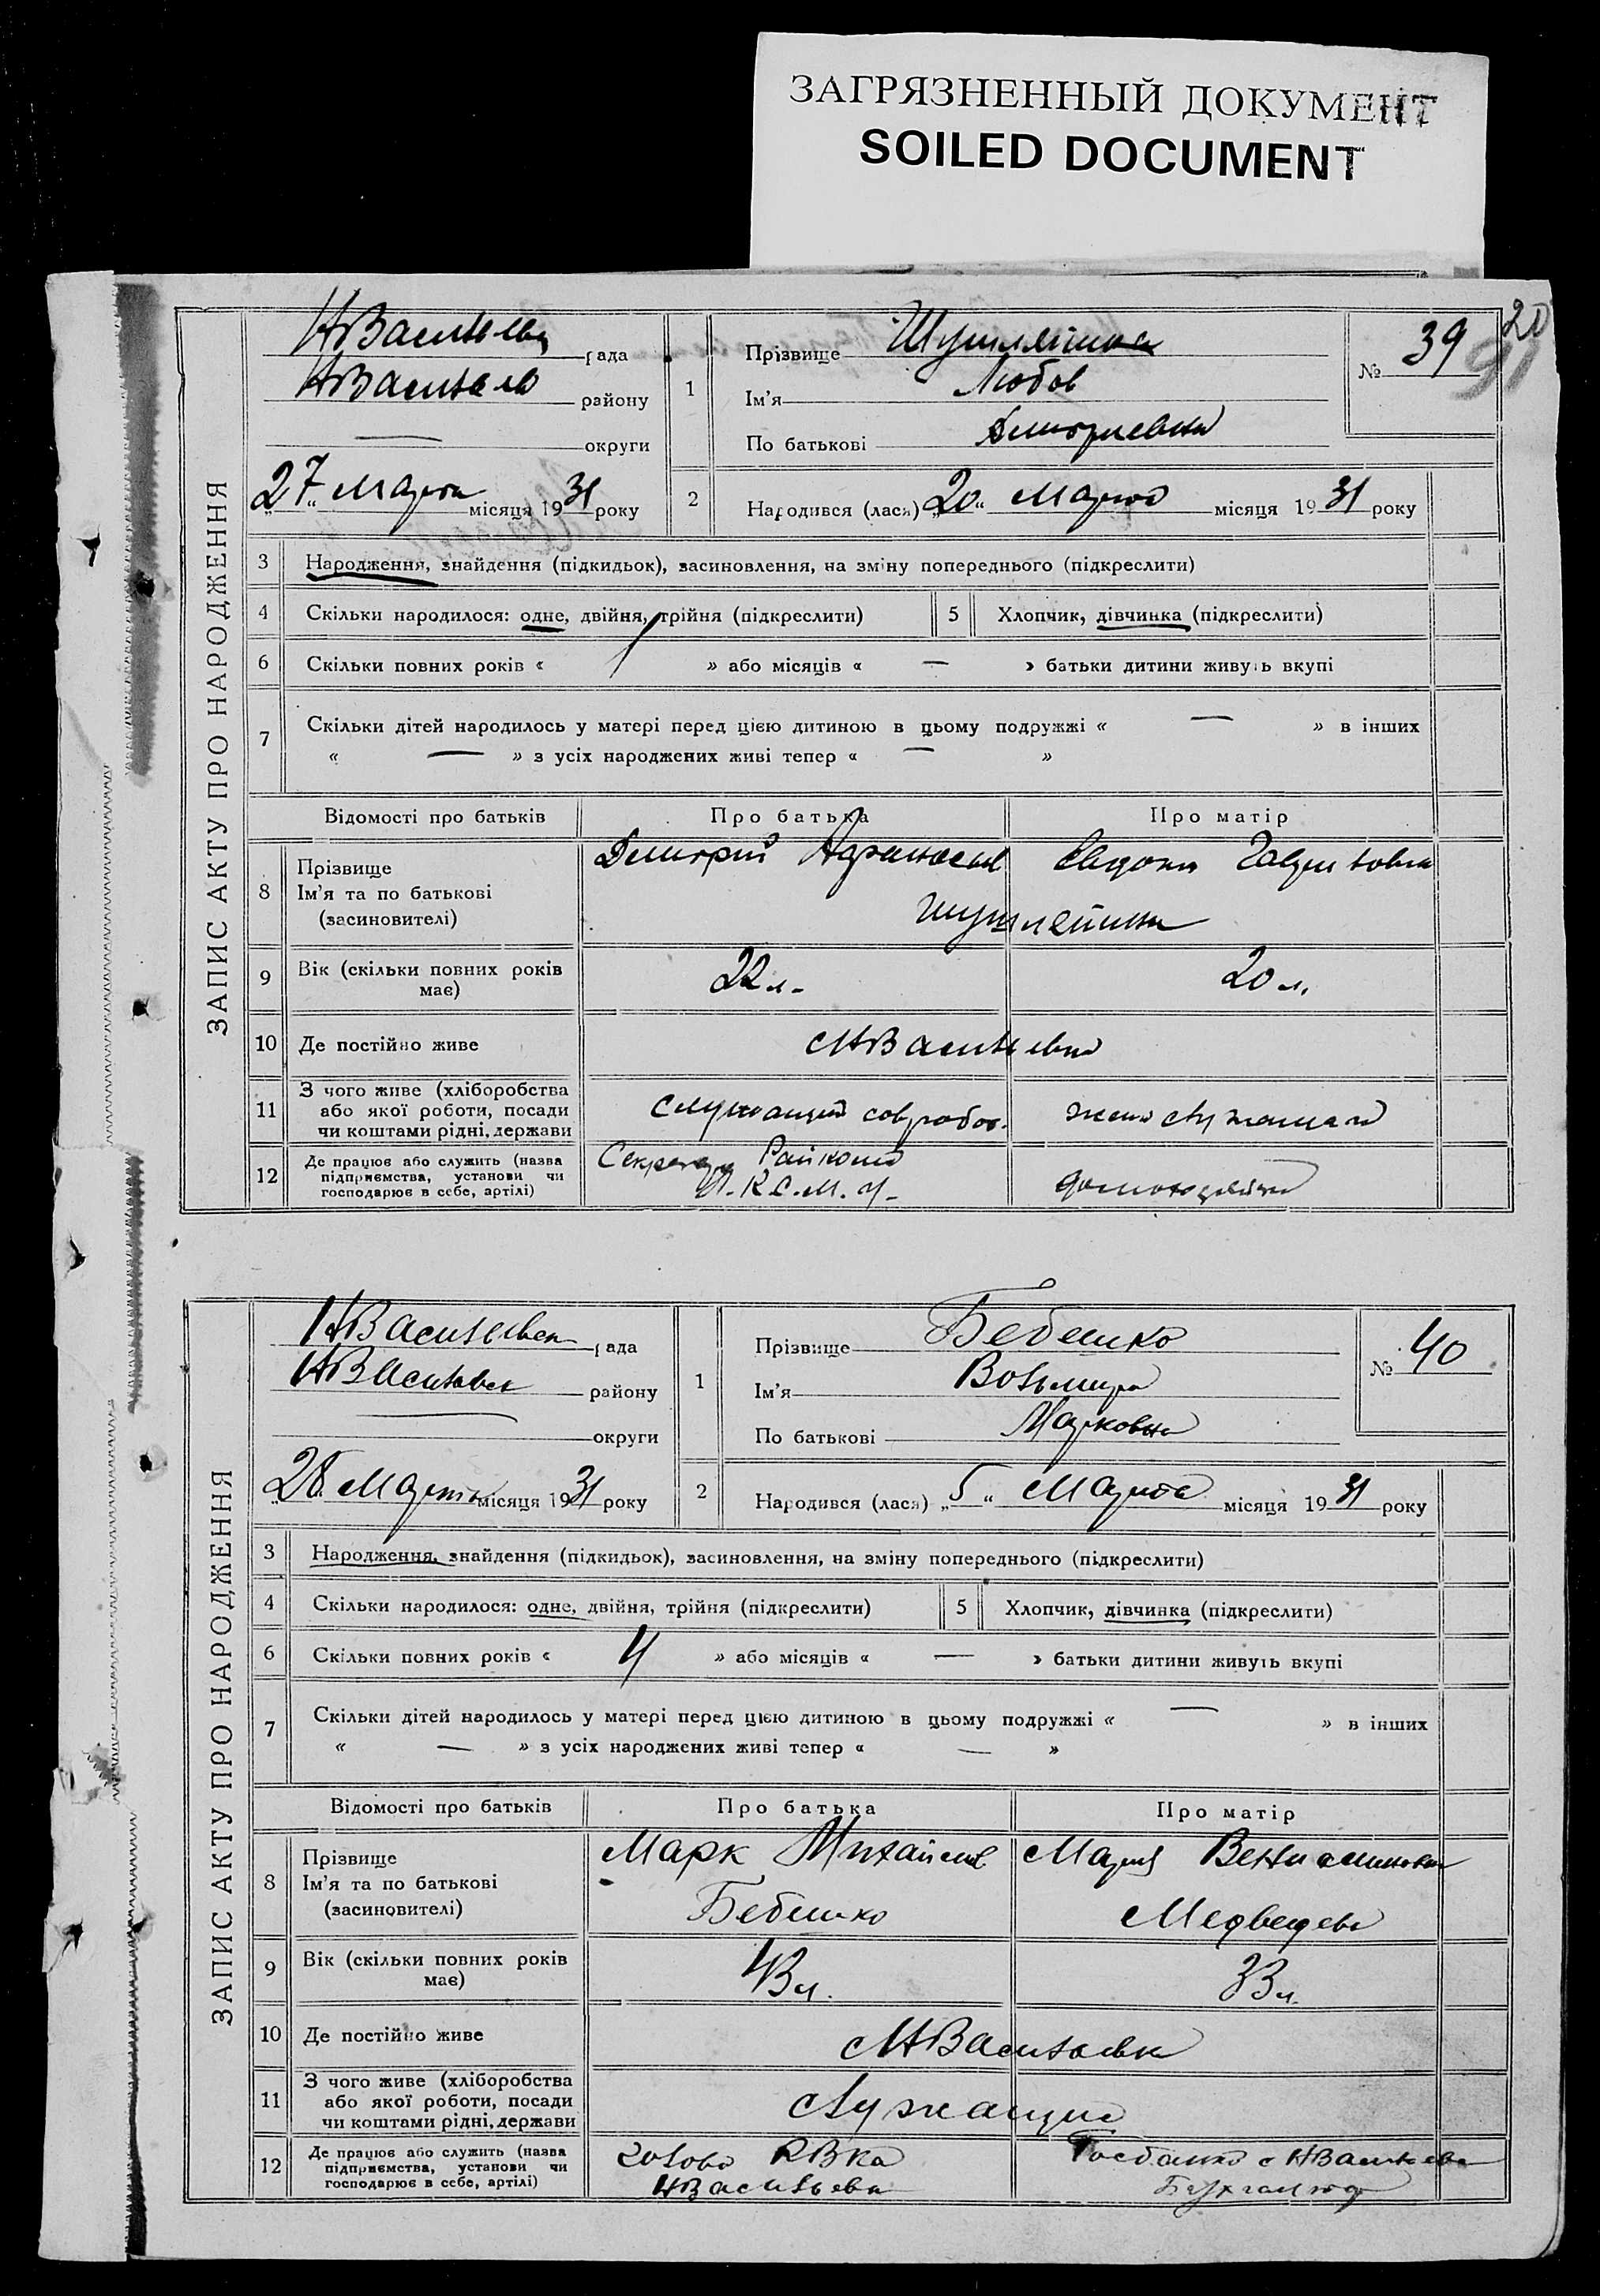 ЗАГРЯЗНЕННЫЙ ДОКУМЕНТ
SOILED DOCUMENT
20
91
ЗАПИС АКТУ ПРО НАРОДЖЕННЯ
рада
району
округи
„27“ марта місяця 1931 року
1
Прізвище
Ім'я Любов
По батькові Дмитриевна
№ 39
2
Народився (лася) „20“ марта місяця 1931 року
3 Народження, знайдення (підкидьок), засиновлення, на зміну попереднього (підкреслити)
4 Скільки народилося: одне, двійня, трійня (підкреслити)
5 Хлопчик, дівчинка (підкреслити)
6 Скільки повних років « 1 » або місяців « — » батьки дитини живуть вкупі
7 Скільки дітей народилось у матері перед цією дитиною в цьому подружжі « — » в інших
« — » з усіх народжених живі тепер « — »
Відомості про батьків
Про батька
Про матір
8 Прізвище
Ім'я та по батькові
(засиновителі)
Дмитрий
Евдокия
9 Вік (скільки повних років
має)
22 л.
20 л.
10 Де постійно живе
11 З чого живе (хліборобства
або якої роботи, посади
чи коштами рідні, держави
служащий
12 Де працює або служить (назва
підприємства, установи чи
господарює в себе, артілі)
Секретарь Райкома
Л.К.С.М.У.
домохозяйка
ЗАПИС АКТУ ПРО НАРОДЖЕННЯ
рада
району
округи
„28“ марта місяця 1931 року
1
Прізвище Бебешко
Ім'я
По батькові Марковна
№ 40
2
Народився (лася) „5“ марта місяця 1931 року
3 Народження, знайдення (підкидьок), засиновлення, на зміну попереднього (підкреслити)
4 Скільки народилося: одне, двійня, трійня (підкреслити)
5 Хлопчик, дівчинка (підкреслити)
6 Скільки повних років « 4 » або місяців « — » батьки дитини живуть вкупі
7 Скільки дітей народилось у матері перед цією дитиною в цьому подружжі « — » в інших
« — » з усіх народжених живі тепер « — »
Відомості про батьків
Про батька
Про матір
8 Прізвище
Ім'я та по батькові
(засиновителі)
Марк
Мария
Бебешко
Медведева
9 Вік (скільки повних років
має)
43 л.
33 л.
10 Де постійно живе
11 З чого живе (хліборобства
або якої роботи, посади
чи коштами рідні, держави
Служащие
12 Де працює або служить (назва
підприємства, установи чи
господарює в себе, артілі)
голова РВКа
Госбанк
Бухгалтер